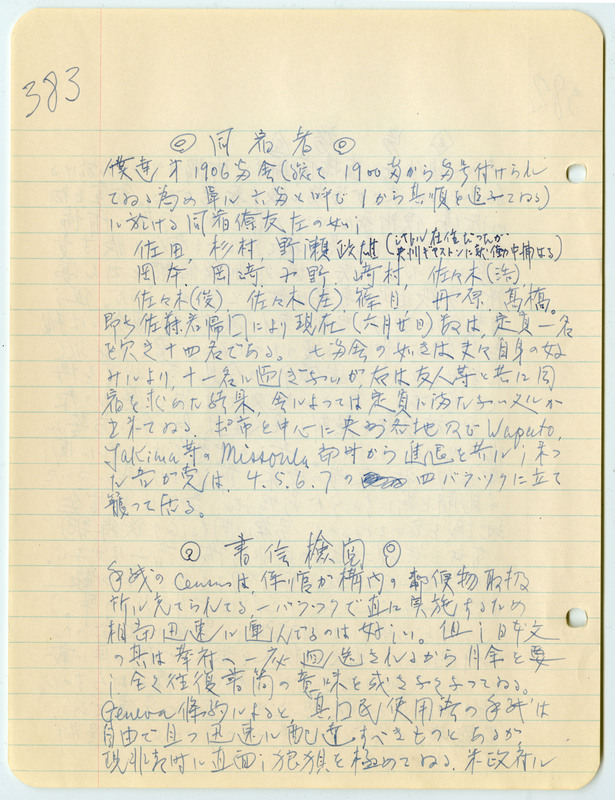 383
◎ 同宿者 ◎
僕達ノ1906号舎(総て1900号から番号付けられ
てゐる為め単ル六号と呼び1から其順を追ふてゐる)
ル於ける同宿僚友左の如し
佐田、杉村、野瀬政雄(シヤトル在住だつたが
央州ギヤストンにて就働中捕はる)
岡本、岡崎、中野、崎村、佐々木(浩)、
佐々木(俊)、佐々木(左)、篠月、丹原、高橋。
即ち佐藤君帰□により現在(六月廿日)数は、定員一名
を欠き十四名である。七号舎の如きは夫々自身の好
みルより、十一名ル過ぎないが、右は友人等と共に同
宿を求めた結果、舎ルよつては定員ル満たないメルが
出来てゐる。ポ市を中心に央州各地及びWapato,
Yakima等のMissoula部時から進退を共ルし来つ
た吾が党は、4.5.6.7の四バラツクに立て
籠つて居る。
◎ 書信検閲 ◎
手紙のCensorは、係り官が構内の郵便物取扱
所ル充てられてる一バラツクで直に実施するため
相当迅速ル運んでるのは好しい。但し日本文
の其は華府へ一応回送されるから月余を要
し全く往復書簡の意味を或さなくなつてゐる。
Geneva條約によると、其国民使用語の手紙は
自由で且つ迅速ル配達すべきものとあるが
現非常時ル直面し狼狽を極めてゐる米政府ル